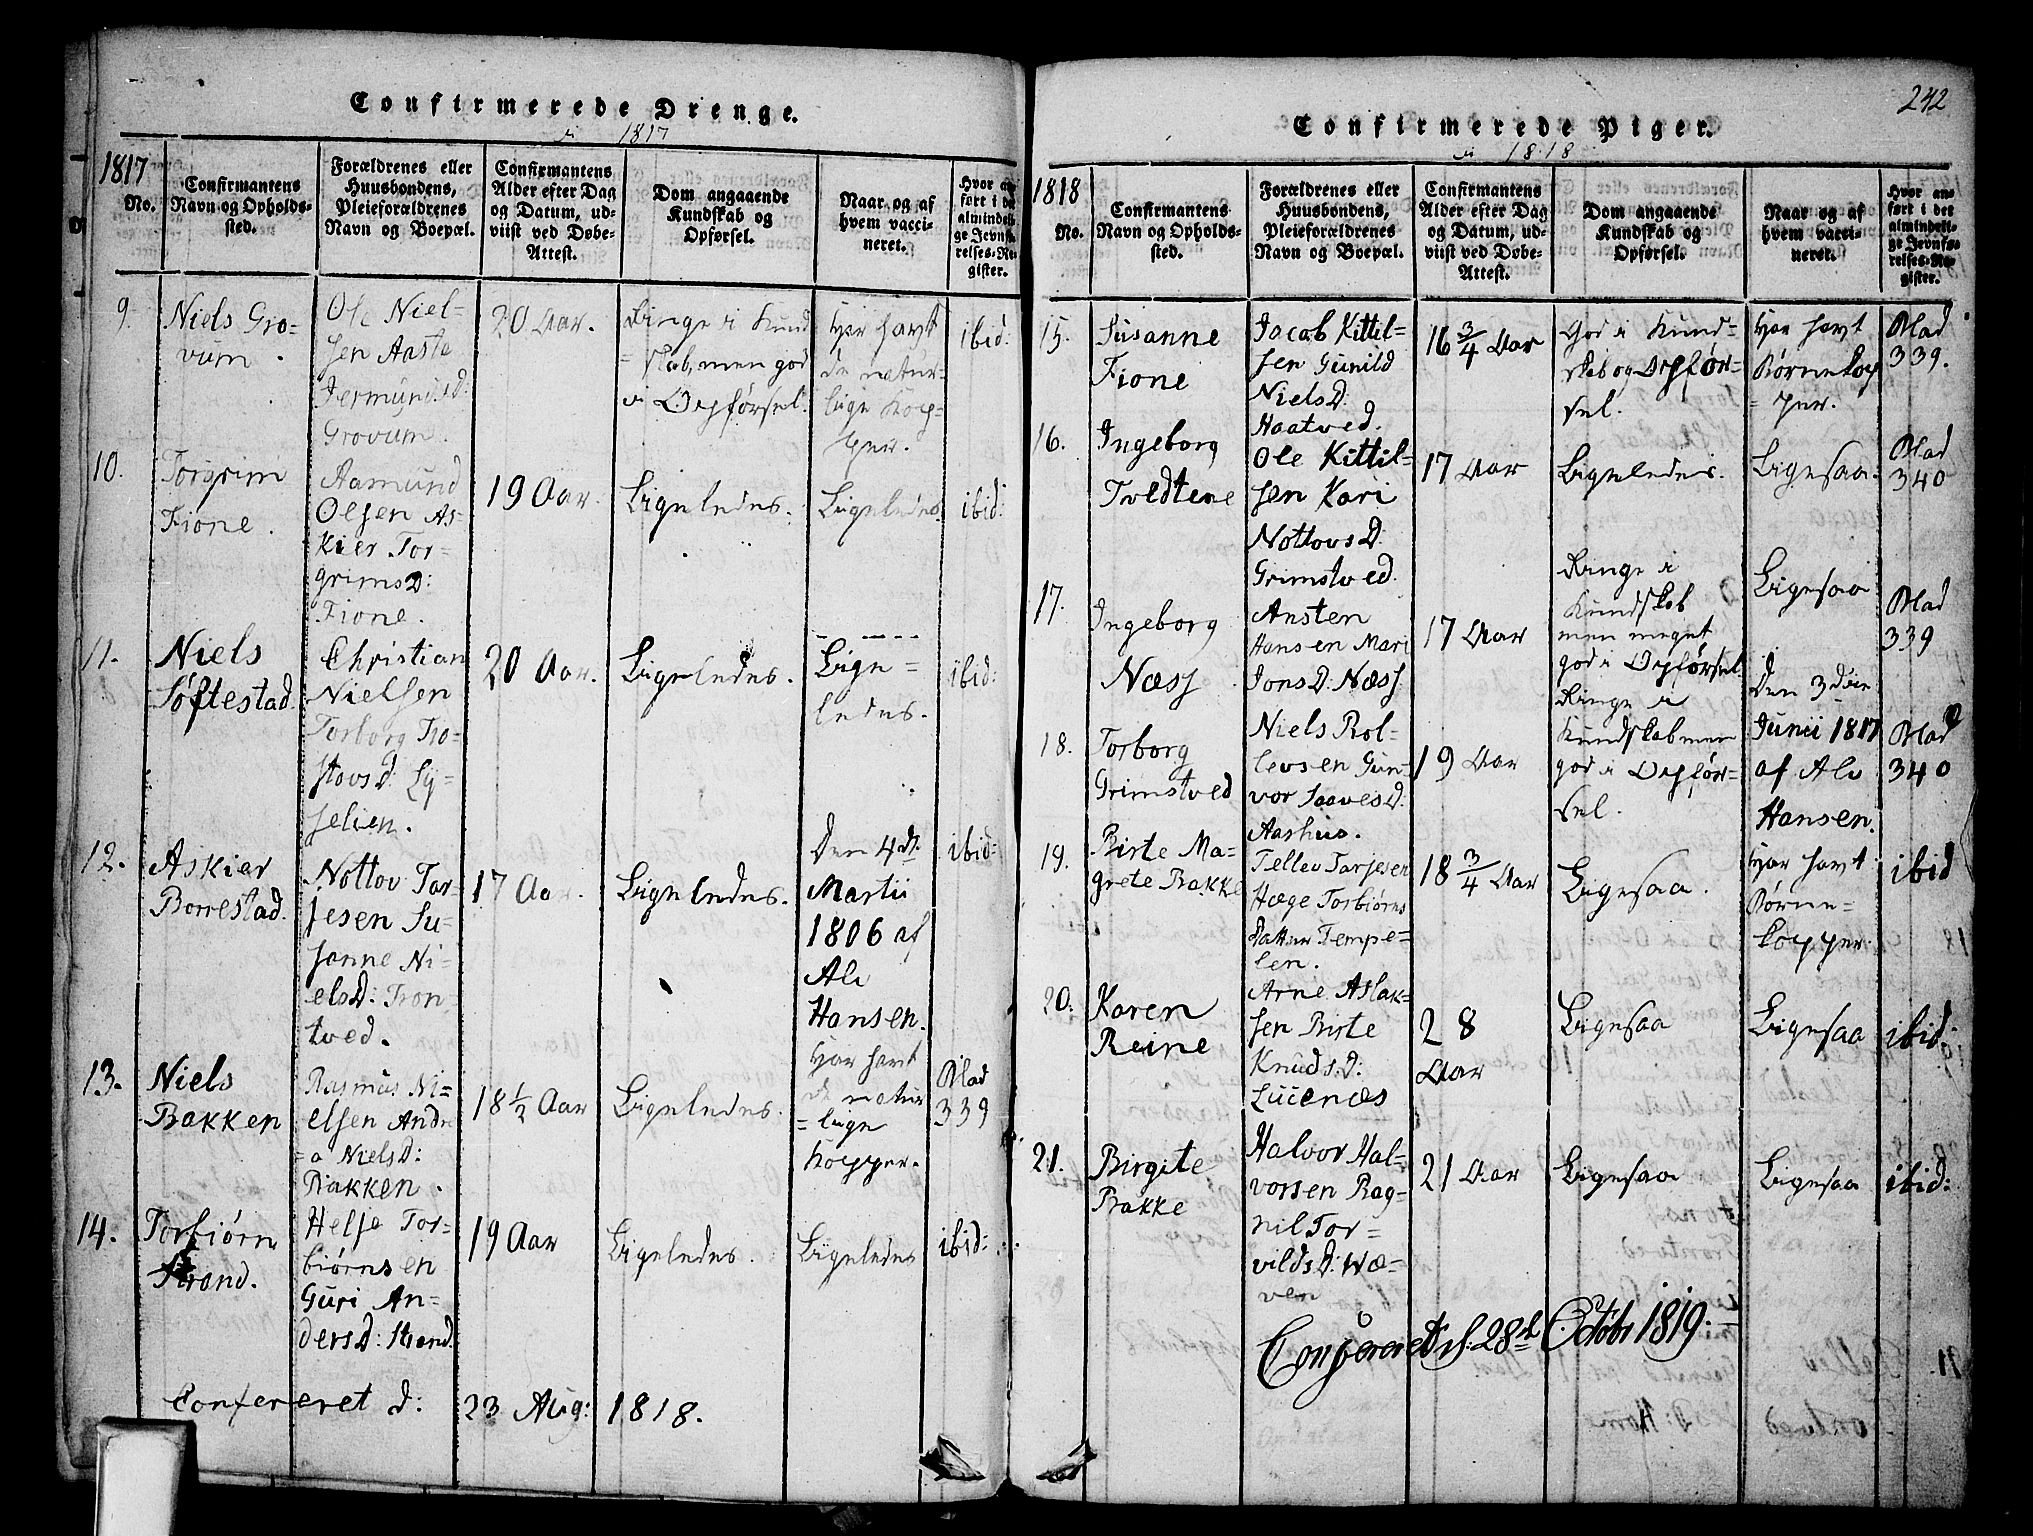 Confirmerede Drenge.
i 1817
1817
No.
Confirmantens
Navn og Opholds-
sted.
Forældrenes eller
Huusbondens,
Pleieforældrenes
Navn og Boepæl.
Confirmantens
Alder efter Dag
og Datum, ud-
viist ved Døbe-
Attest.
Dom angaaende
Kundskab og
Opførsel.
Naar og af
hvem vacci-
neret.
Hvor an-
ført i det
almindeli-
ge Jevnfø-
relses-Re-
gister.
9.
Niels Gro-
vum.
Ole Niel-
sen Aaste
Jermund.d:
Grovum.
20 Aar.
Ringe i Kund
=skab, men god
i Opførsel.
Har havt
de natur-
lige Kop-
per.
ibid:
10.
Torgrim
Fione.
Aamund
Olsen As-
kier Tor-
grimsD:
Fione.
19 Aar.
Ligeledes.
Ligeledes.
ibid:
11.
Niels
Søftestad.
Christian
Nielsen
Torborg Tro-
stovsd: Ly-
selien.
20 Aar.
Ligeledes.
Lige=
ledes.
ibid:
12.
Askier
Borrestad.
Nottov Tar-
jesen Su-
sanne Ni-
elsD: Tron-
tved.
17 Aar.
Ligeledes.
Den 4de
Martii
1806 af
Alv
Hansen.
ibid:
13.
Niels
Bakken
Rasmus Ni=
elsen Andre
=a NielsD:
Bakken.
18 1/2 Aar
Ligeledes.
Har havt
de natur
=lige
Kopper.
Blad
339
14.
Torbiørn
Strand.
Helje Tor-
biørnsen
Guri An-
dersD: Strand
19 Aar
Ligeledes.
Ligeledes
ibid:
Confereret d: 23 Aug: 1818.
242
Confirmerede Piger.
i 1818
1818
No.
Confirmantens
Navn og Opholds-
sted.
Forældrenes eller
Huusbondens,
Pleieforældrenes
Navn og Boepæl.
Confirmantens
Alder efter Dag
og Datum, ud-
viist ved Døbe-
Attest.
Dom angaaende
Kundskab og
Opførsel.
Naar og af
hvem vacci-
neret.
Hvor an-
ført i det
almindeli-
ge Jevnfø-
relses-Re-
gister.
15.
Susanne
Fione
Jacob Kittil=
sen Gunild
NielsD:
Haatved.
16 3/4 Aar
God i Kund-
skab og Opfør-
sel.
Har havt
Børnekop
=per.
Blad
339.
16.
Ingeborg
Tvedtene
Ole Kittil=
sen Kari
NottovsD:
Grimstved.
17 Aar
Ligeledes.
Ligesaa.
Blad
340
17.
Ingeborg
Næss
Ansten
Hansen Mari
JonsD: Næss
17 Aar
Ringe i
Kundskab
men meget
god i Opførsel.
Ligesaa
Blad
339
18.
Torborg
Grimstved
Niels Rol-
levsen Gun-
vor SaavesD:
Aashuo.
19 Aar
Ringe i
Kundskab men
god i Opfør-
sel.
Den 3die
Junii 1817
af Alv
Hansen.
Blad
340
19.
Birte Ma-
grete Bakke
Tellev Tarjesen
Hæge Torbiørns
Datter Tempe=
len.
18 3/4 Aar
Ligesaa.
Har havt
Børne=
kopper.
ibid
20.
Karen
Reine
Arne Aslak=
sen Birte
KnudsD:
28
Aar
Ligesaa
Ligesaa
ibid.
21.
Birgite
Bakke
Halvor Hal=
vorsen Rag-
nil Tor=
vildsD: Wæ=
ven
21 Aar
Ligesaa
Ligesaa
ibid:
Confereret d. 28d Octobr 1819.